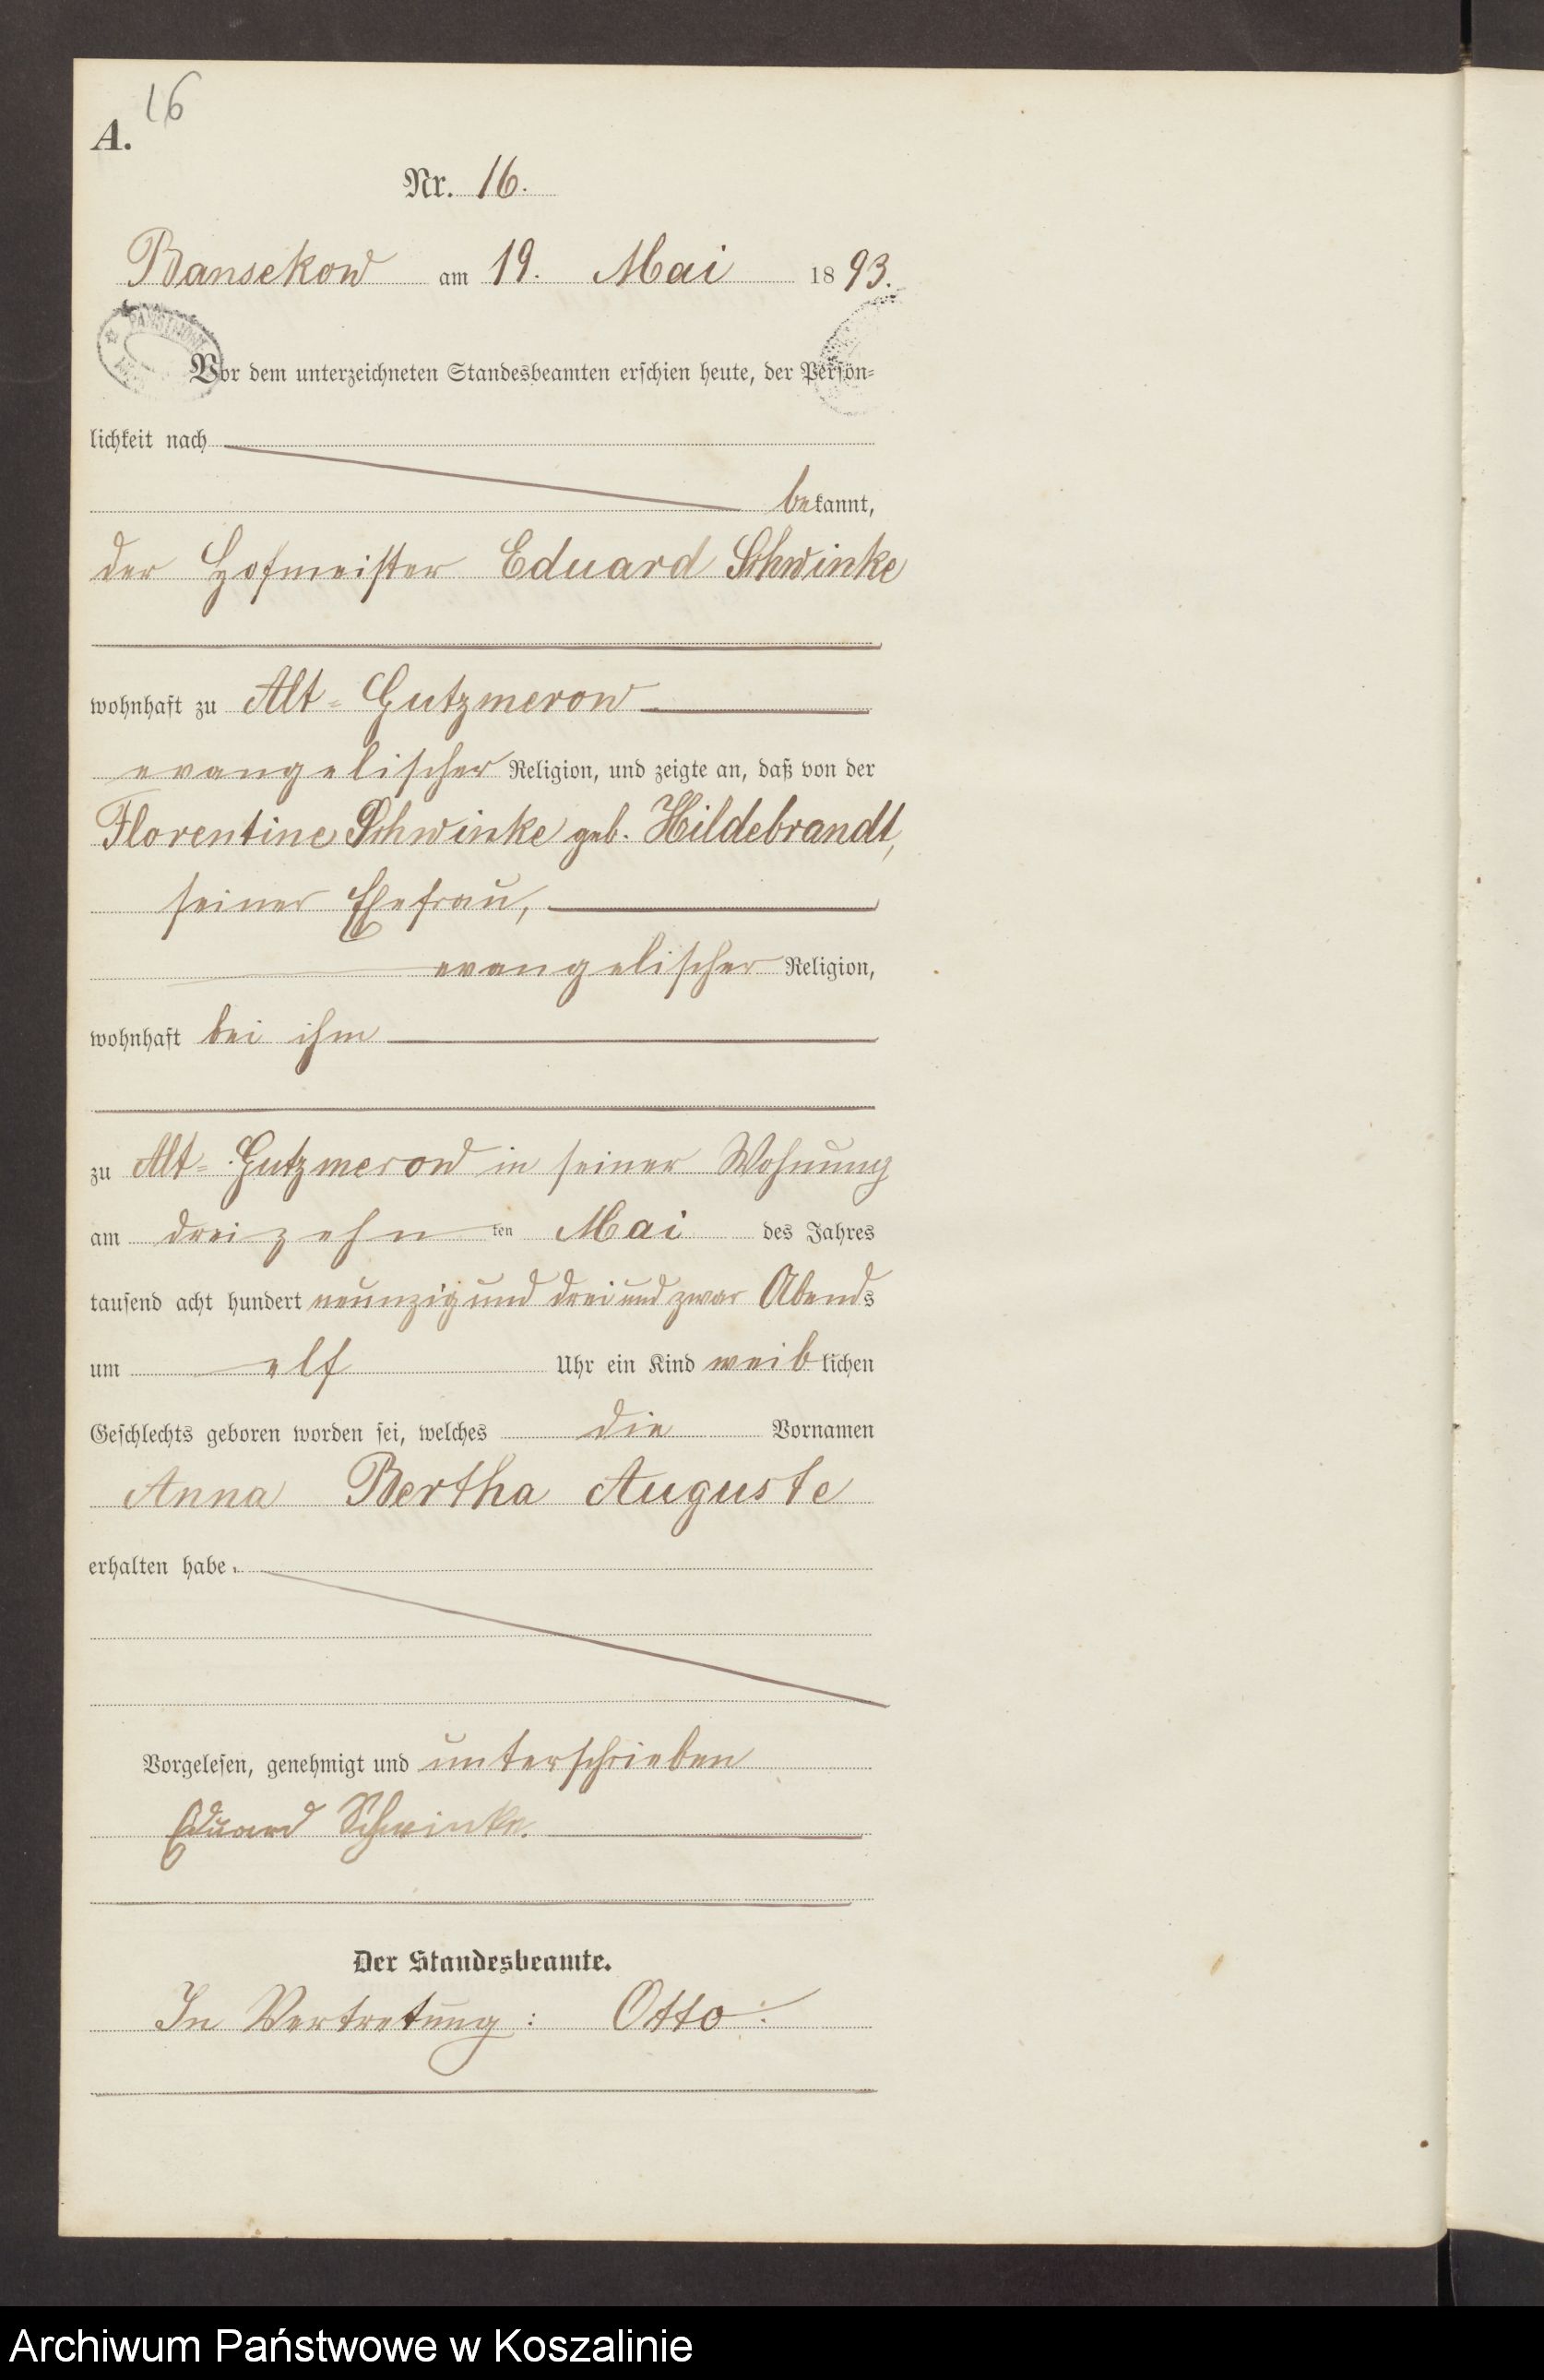 16
A.
Nr. 16.
Bansekow am 19. Mai 1893.
Vor dem unterzeichneten Standesbeamten erschien heute, der Persön-
lichkeit nach
bekannt,
der Hofmeister Eduard Schwinke
wohnhaft zu Alt-Gutzmerow
evangelischer Religion, und zeigte an, daß von der
Florentine Schwinke geb. Hildebrandt,
seiner Ehefrau,
evangelischer Religion,
wohnhaft bei ihm
zu Alt-Gutzmerow in seiner Wohnung
am dreizehnten Mai des Jahres
tausend acht hundert neunzig und drei und zwar Abends
um elf Uhr ein Kind weiblichen
Geschlechts geboren worden sei, welches die Vornamen
Anna Bertha Auguste
erhalten habe.
Vorgelesen, genehmigt und unterschrieben
Eduard Schwinke.
Der Standesbeamte.
In Vertretung: Otto.
Archiwum Państwowe w Koszalinie